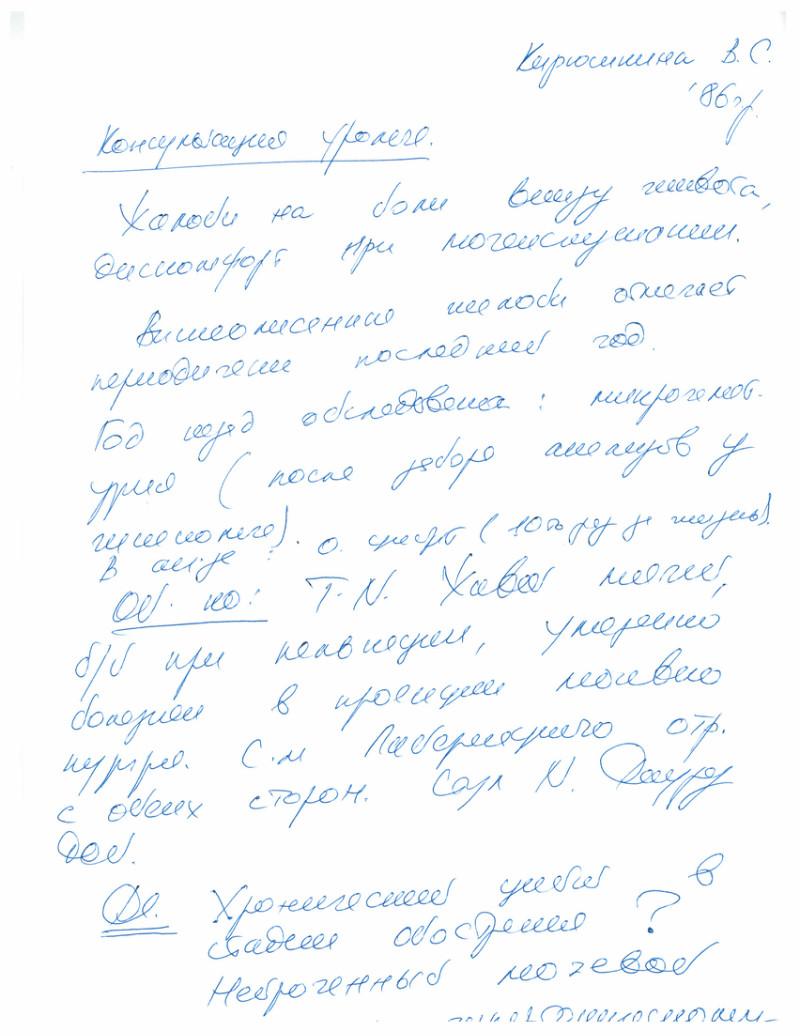 Кирюшкина В. С.
'86 г.р.
Консультация уролога.
Жалобы на боли внизу живота,
дискомфорт при мочеиспускании.
Вышеописанные жалобы отмечает
периодически последний год.
Год назад обследована: микрогемат-
урия (после забора анализов у
гинеколога).
В анам-зе: о. цистит (10 раз за жизнь).
Об-но: T. N. Живот мягкий,
б/б при пальпации, умеренно
болезнен в проекции мочевого
пузыря. С-м Пастернацкого отр.
с обеих сторон. Стул N. Диурез
дост.
Ds. Хронический цистит в
стадии обострения ?
Нейрогенный мочевой